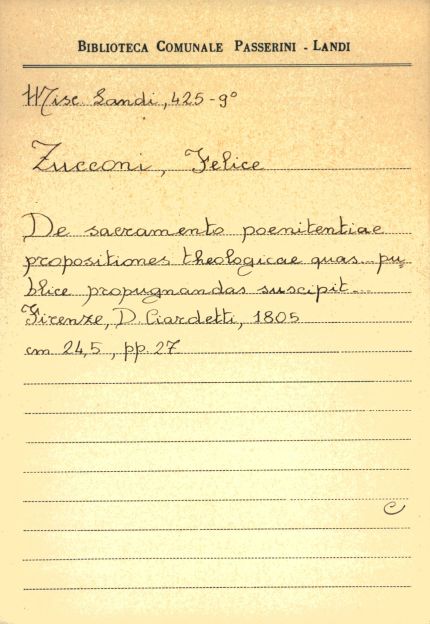 BIBLIOTECA COMUNALE PASSERINI - LANDI
Misc. Landi, 425-9°
Zucconi, Felice
De sacramento poenitentiae
propositiones theologicae quas pu=
blice propugnandas suscipit.
Firenze, D. Ciardetti, 1805
cm 24,5, pp. 27
C